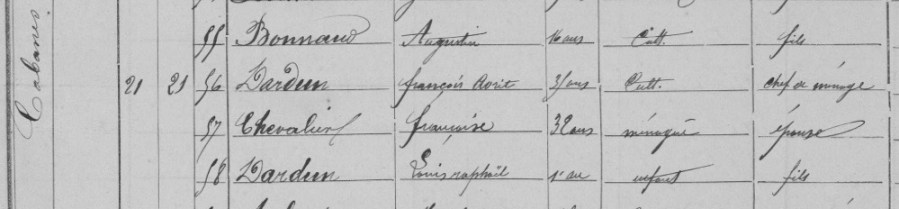 Cabanis
55 Bonnaud Augustin 16 ans Cult. fils
21 21 56 Dardun françois 35 ans Cult. chef de ménage
57 Chevalier françoise 32 ans ménagère épouse
58 Dardun Louis raphaël 1 an enfant fils